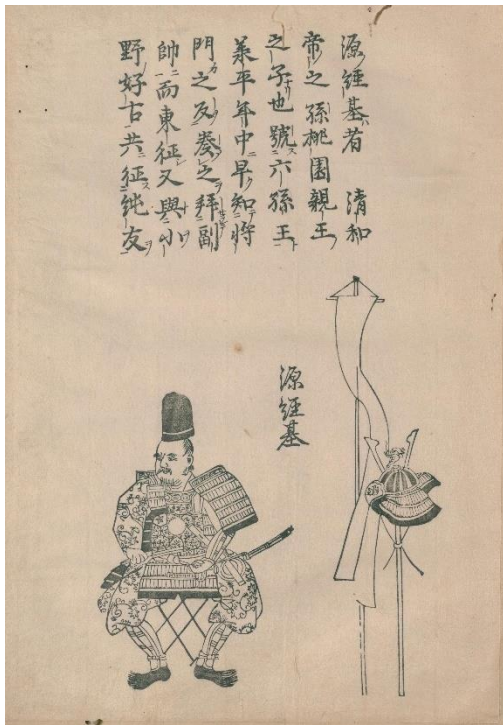 源經基者 清和
帝之孫桃園親王
之子也號六孫王
承平年中早知將
門之反奏之拜副
帥而東征又與小
野好古共征純友
源經基